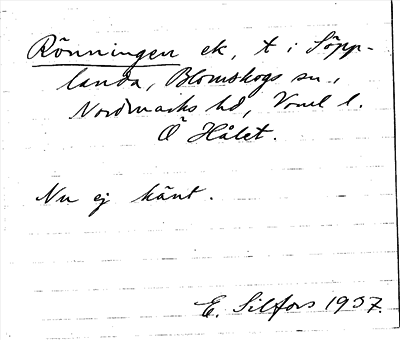 Rönningen ek, t i Söpp-
landa, Blomskogs sn.,
Nordmarks hd, Vrml l.
Ö Hålet.
Nu ej känt.
E. Silfors 1937.